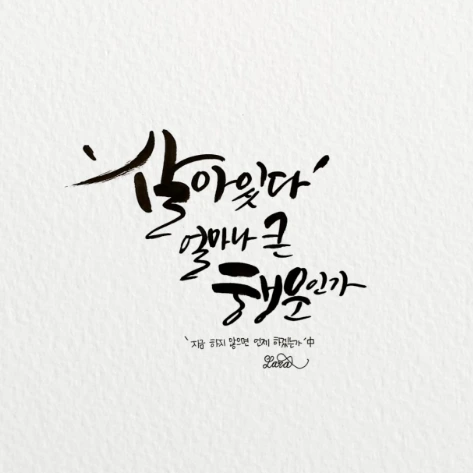 '살아있다'
얼마나 큰
행운인가
'지금 하지 않으면 언제 하겠는가' 中
Lara